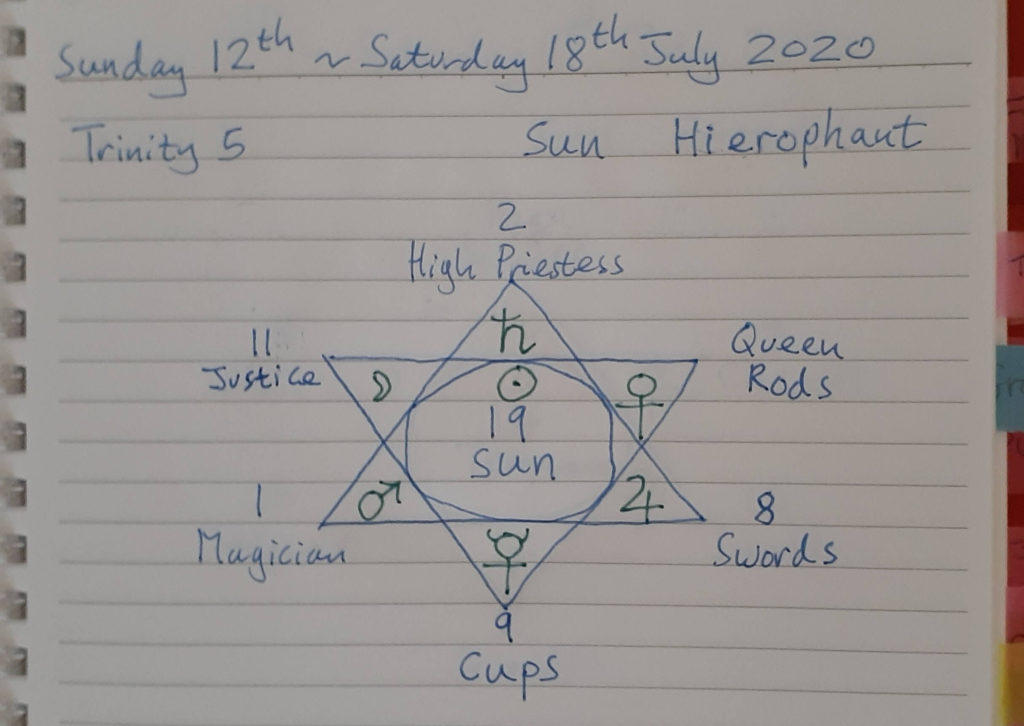 Sunday 12th ~ Saturday 18th July 2020
Trinity 5 Sun Hierophant
2
High Priestess
11
Justice
Queen
Rods
♄
☽
☉
♀
19
Sun
1
Magician
♂
♃
8
Swords
☿
9
Cups